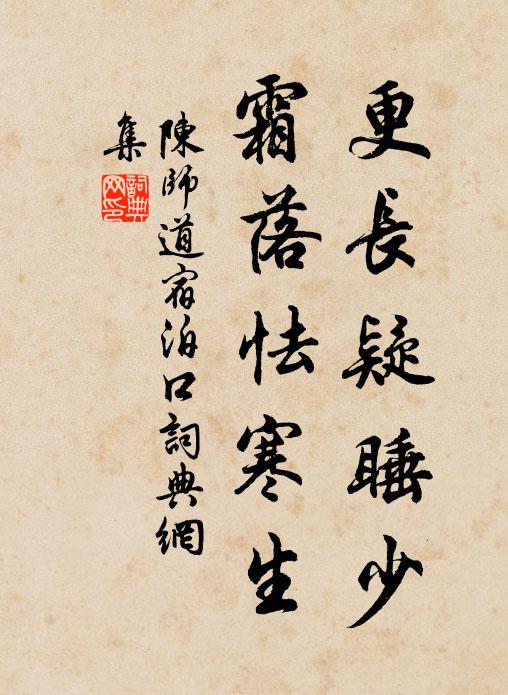 更長疑睡少
霜落怯寒生
陳師道宿泊口詞典網
集
詞典
网印